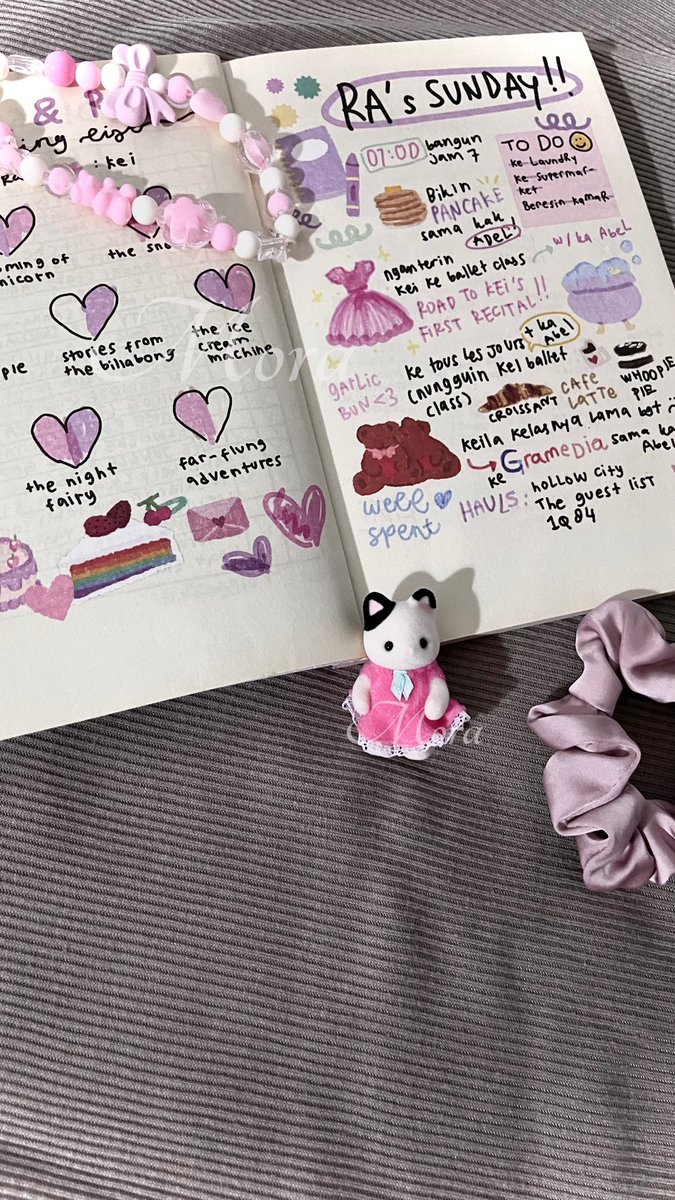 &
: kei
the sno
stories from
the billabong
the ice
cream
machine
the night
fairy
far-flung
adventures
RA's SUNDAY!!
07:00 bangun
jam 7
Bikin
PANCAKE
sama kak
ABEL!
TO DO
ke laundry
ke supermar-
ket
Beresin kamar
nganterin
kei ke ballet class
w/ ka Abel
ROAD TO KEI'S
FIRST RECITAL!!
ke tous les jours + ka
Abel
(nungguin kei ballet
class)
garlic
BUN <3
CROISSANT
CAFE
LATTE
WHOOPIE
PIE
keila kelasnya lama bgt :)
ke Gramedia sama ka
Abel
HAULS: hollow city
The guest list
1Q84
well
spent
Mora
Mora